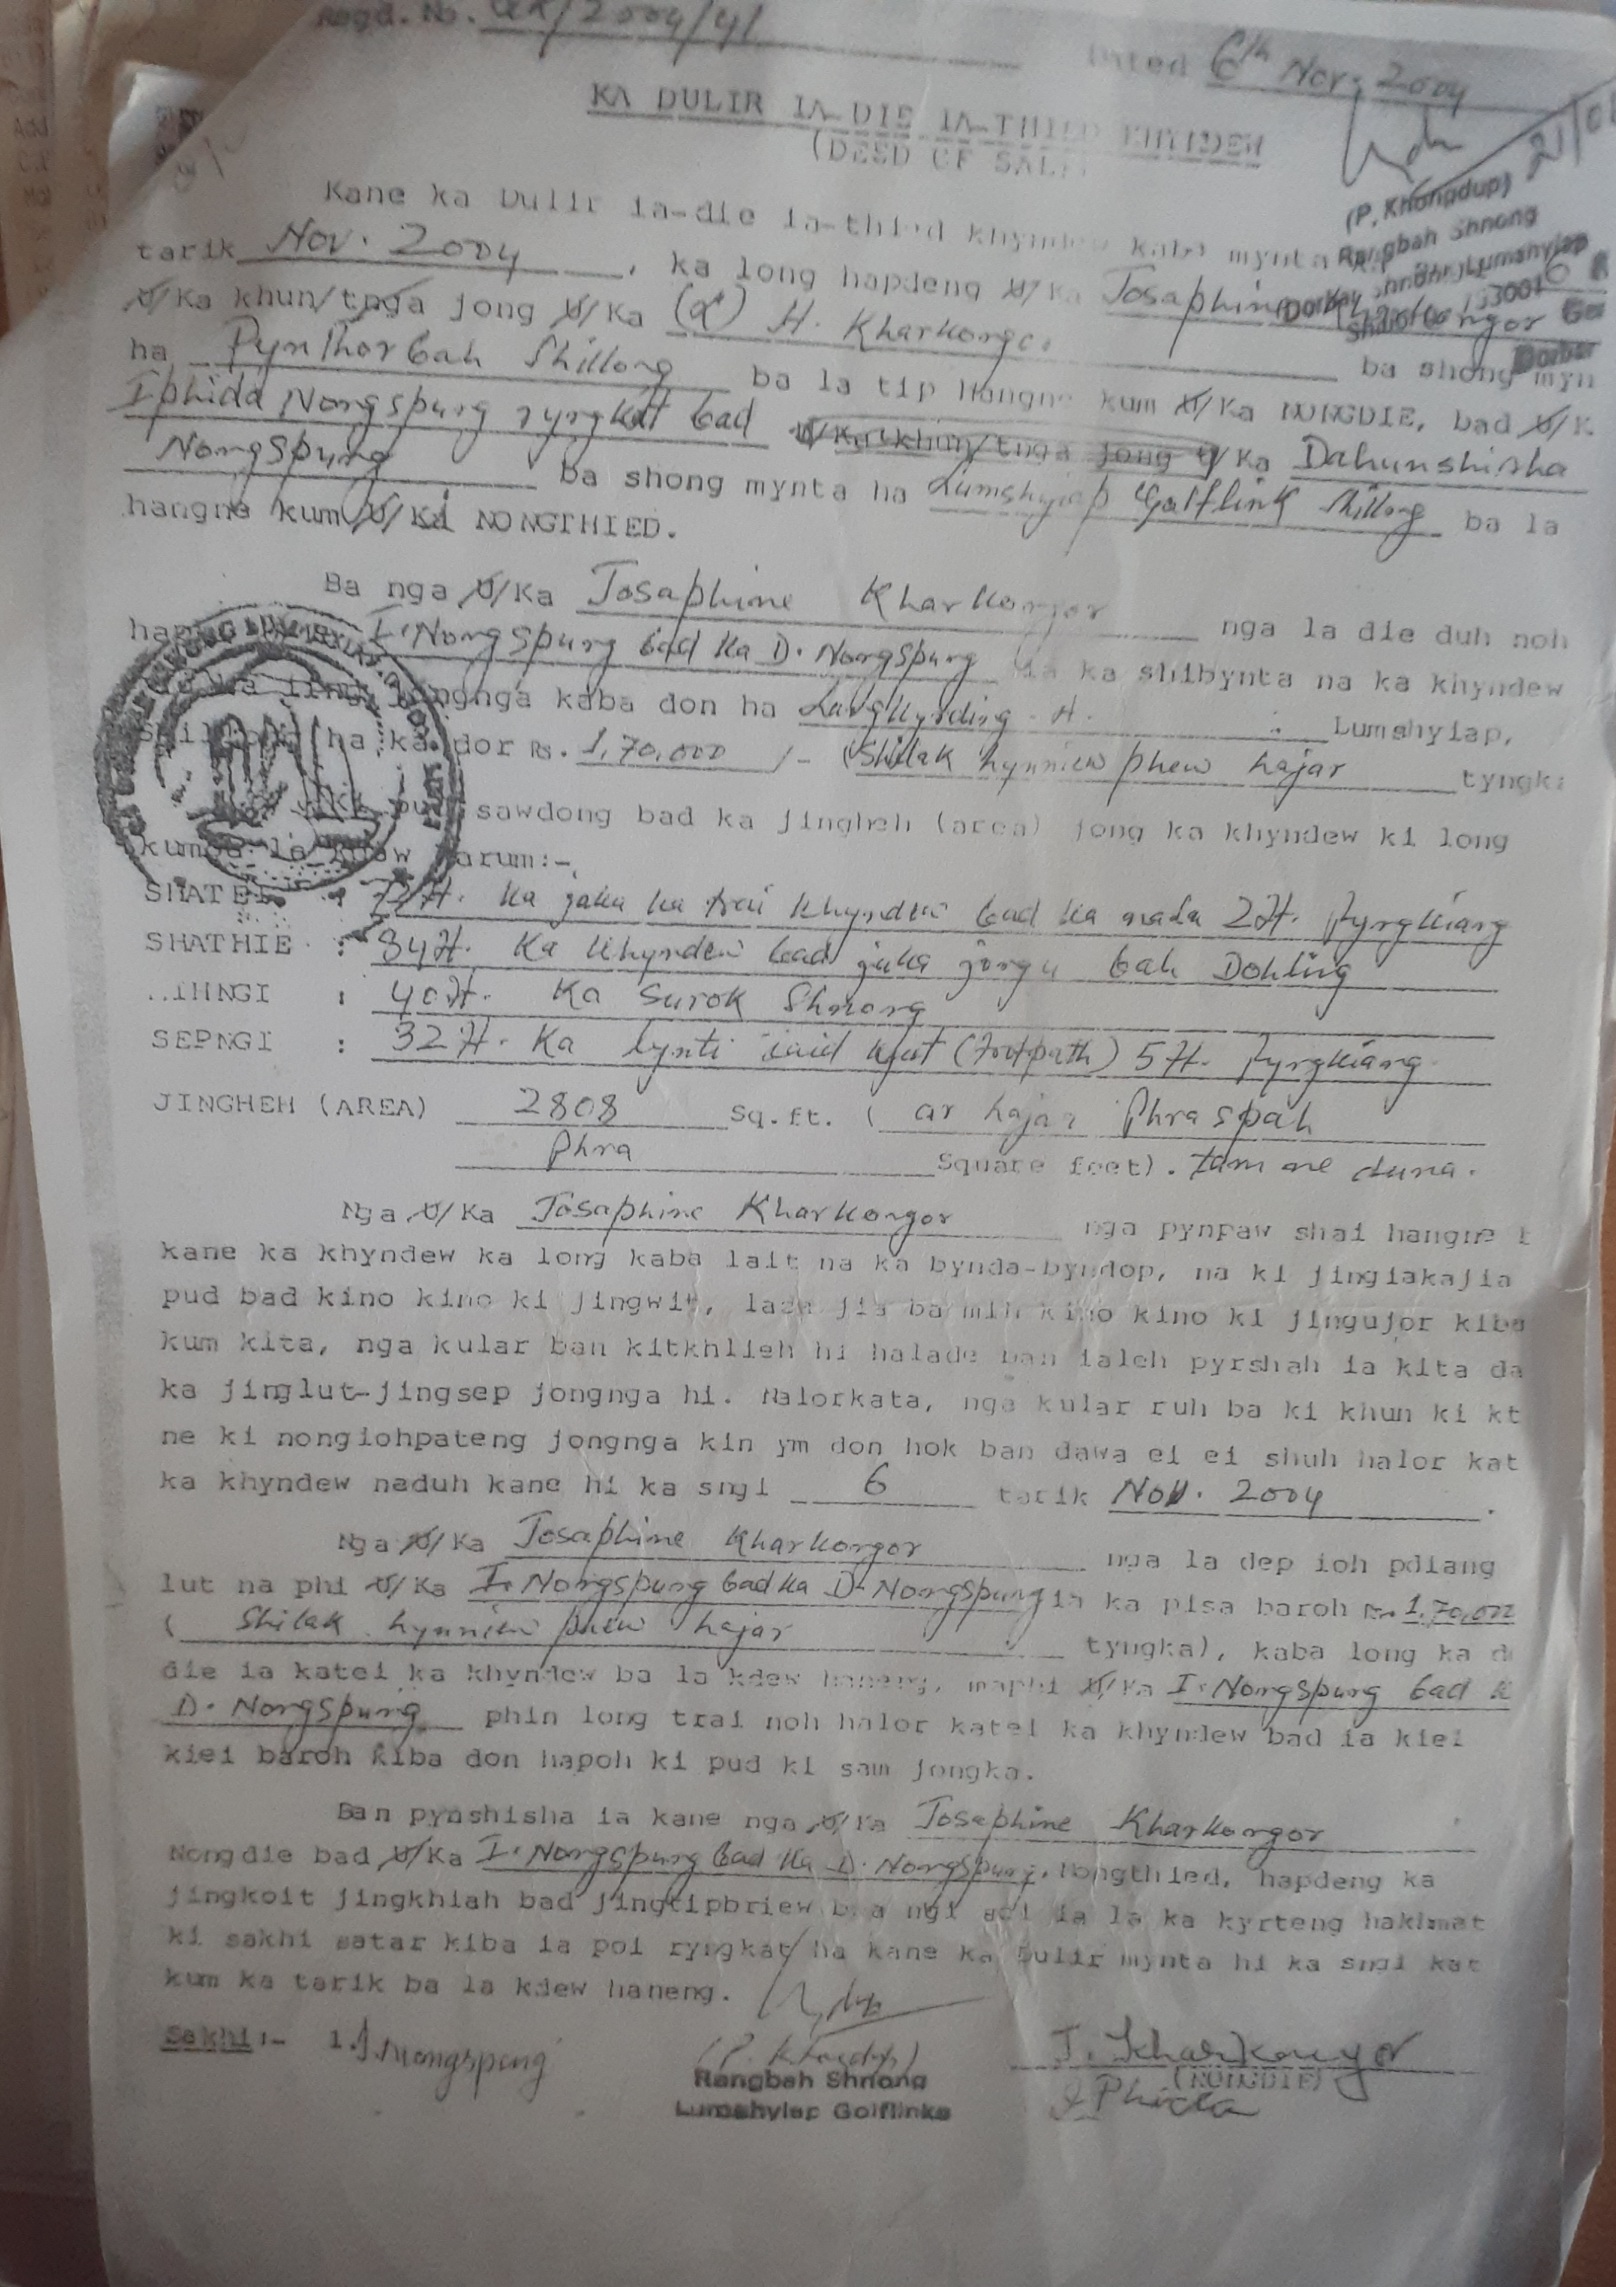 Regd. No. 2004/41
Dated 6th Nov, 2004
KA DULIR IA-DIE IA-THIED KHYNDEW
(DEED OF SALE
21/01
(P. Khongdup)
Rangbah Shnong
Lumshyiap
Dorbar
Kane ka Dulir ia-die ia-thied khyndew kaba mynta
tarik Nov. 2004, ka long hapdeng U/Ka Josaphine Kharkongor
U/Ka khun/tnga jong U/Ka (L) H. Kharkongor ba shong myn
ha Pynthorbah Shillong ba la tip Hangne kum U/Ka NONGDIE, bad U/K
Iphida Nongspung ryngkat bad U/Ka khun/tnga jong U/Ka Dahunshisha
Nongspung ba shong mynta ha Lumshyiap Golflink Shillong ba la
hangne kum U/Ka NONGTHIED.
Ba nga U/Ka Josaphine Kharkongor nga la die duh noh
I. Nongspung bad ka D. Nongspung ia ka shibynta na ka khyndew
jongnga kaba don ha Langkyrding - H. Lumshyiap,
ha ka dor Rs. 1,70,000/- (Shilak hynniew phew hajar tyngka
pud sawdong bad ka jingheh (area) jong ka khyndew ki long
kumba la harum:-
SHATEI : ka jaka ka trai khyndew bad ka nala 2ft. jyngkiang
SHATHIE : 84ft. Ka khyndew bad jaka jong u bah Dohling
..IHNGI : 40ft. Ka Surok Shnong
SEPNGI : 32ft. Ka lynti iaid kjat (Footpath) 5ft. jyngkiang
JINGHEH (AREA) 2808 Sq.ft. ( ar hajar Phraspah
Phra Square feet). tam ne duna.
Nga U/Ka Josaphine Kharkongor nga pynpaw shai hangne
kane ka khyndew ka long kaba lait na ka bynda-byndop, na ki jingiakajia
pud bad kino kino ki jingwit, lada jia ba mih kino kino ki jingujor kiba
kum kita, nga kular ban kitkhlieh hi halade ban ialeh pyrshah ia kita da
ka jinglut-jingsep jongnga hi. Halorkata, nga kular ruh ba ki khun ki kt
ne ki nongiohpateng jongnga kin ym don hok ban dawa ei ei shuh halor kat
ka khyndew naduh kane hi ka sngi 6 tarik Nov. 2004.
Nga U/Ka Josaphine Kharkongor nga la dep ioh pdiang
lut na phi U/Ka I. Nongspung bad ka D. Nongspung ia ka pisa baroh Rs. 1,70,000
( Shilak hynniew phew hajar tyngka), kaba long ka d
die ia katei ka khyndew ba la kdew haneng, maphi U/Ka I. Nongspung bad K
D. Nongspung phin long trai noh halor katei ka khyndew bad ia kiei
kiei baroh kiba don hapoh ki pud ki sam jongka.
Ban pynshisha ia kane nga U/Ka Josaphine Kharkongor
Nongdie bad U/Ka I. Nongspung bad ka D. Nongspung, Nongthied, hapdeng ka
jingkoit jingkhiah bad jingtipbriew ba ngi soi ia la ka kyrteng hakhmat
ki sakhi satar kiba ia poi ryngkat ha kane ka Dulir mynta hi ka sngi kat
kum ka tarik ba la kdew haneng.
Sakhi:- 1. I. Nongspung
(P. Khongdup)
Rangbah Shnong
Lumshyiap Golflinks
J. Kharkongor
(NONGDIE)
I Phida